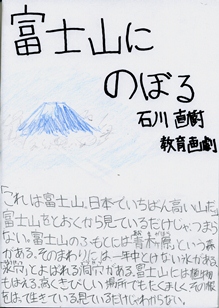 富士山に
のぼる
石川 直樹
教育画劇
「これは富士山。日本でいちばん高い山だ。
富士山をとおくから見ているだけじゃつまら
ない。富士山のふもとには青木ヶ原という森
がある。そのまわりには一年中とけない氷がある
「氷穴」とよばれる洞穴がある。富士山には植物
もはえる。高くきびしい場所でもたくましくその根
をはって生きている。見ているだけじゃわからない